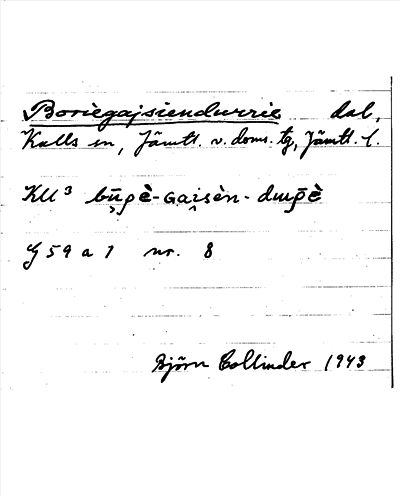 Boriegajsiendurrie dal,
Kalls sn, Jämtl. v. doms. tg, Jämtl. l.
KU³
G 59 a 1 nr. 8
Björn Collinder 1943